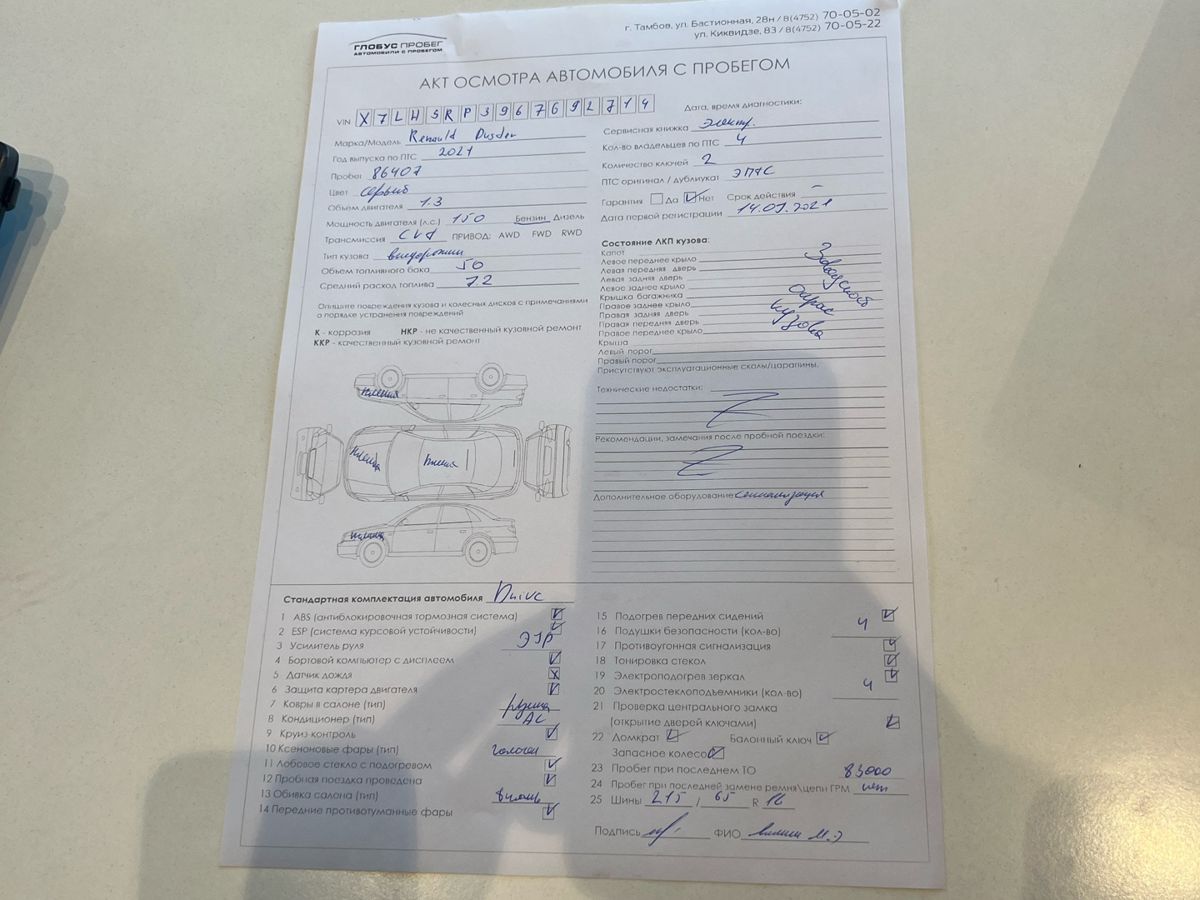 ГЛОБУС ПРОБЕГ
АВТОМОБИЛИ С ПРОБЕГОМ
г. Тамбов, ул. Бастионная, 28н / 8(4752) 70-05-02
ул. Киквидзе, 83 / 8(4752) 70-05-22
АКТ ОСМОТРА АВТОМОБИЛЯ С ПРОБЕГОМ
VIN X7LHSRP3967692714
Марка/Модель Renauld Duster
Год выпуска по ПТС 2021
Пробег 86407
Цвет серый
Объем двигателя 1.3
Мощность двигателя (л.с.) 150 Бензин Дизель
Трансмиссия CVT ПРИВОД: AWD FWD RWD
Тип кузова внедорожник
Объем топливного бака 50
Средний расход топлива 7.2
Опишите повреждения кузова и колесных дисков с примечаниями
о порядке устранения повреждений
К - коррозия НКР - не качественный кузовной ремонт
ККР - качественный кузовной ремонт
пленка
пленка
пленка
пленка
Дата, время диагностики:
Сервисная книжка электр.
Кол-во владельцев по ПТС 4
Количество ключей 2
ПТС оригинал / дубликат ЭПТС
Гарантия Да Нет Срок действия –
Дата первой регистрации 14.09.2021
Состояние ЛКП кузова:
Капот
Левое переднее крыло
Левая передняя дверь
Левая задняя дверь
Левое заднее крыло
Крышка багажника
Правое заднее крыло
Правая задняя дверь
Правая передняя дверь
Правое переднее крыло
Крыша
Левый порог
Правый порог
Заводской
окрас
кузова
Присутствуют эксплуатационные сколы/царапины.
Технические недостатки:
Рекомендации, замечания после пробной поездки:
Дополнительное оборудование сигнализация
Стандартная комплектация автомобиля Drive
1 ABS (антиблокировочная тормозная система)
2 ESP (система курсовой устойчивости)
3 Усилитель руля ЭУР
4 Бортовой компьютер с дисплеем
5 Датчик дождя
6 Защита картера двигателя
7 Ковры в салоне (тип) резина
8 Кондиционер (тип) AC
9 Круиз-контроль
10 Ксеноновые фары (тип) галоген
11 Лобовое стекло с подогревом
12 Пробная поездка проведена
13 Обивка салона (тип) велюр
14 Передние противотуманные фары
15 Подогрев передних сидений
16 Подушки безопасности (кол-во) 4
17 Противоугонная сигнализация
18 Тонировка стекол
19 Электроподогрев зеркал
20 Электростеклоподъемники (кол-во) 4
21 Проверка центрального замка
(открытие дверей ключами)
22 Домкрат Балонный ключ
Запасное колесо
23 Пробег при последнем ТО 83000
24 Пробег при последней замене ремня\цепи ГРМ нет
25 Шины 215 / 65 R 16
Подпись ФИО